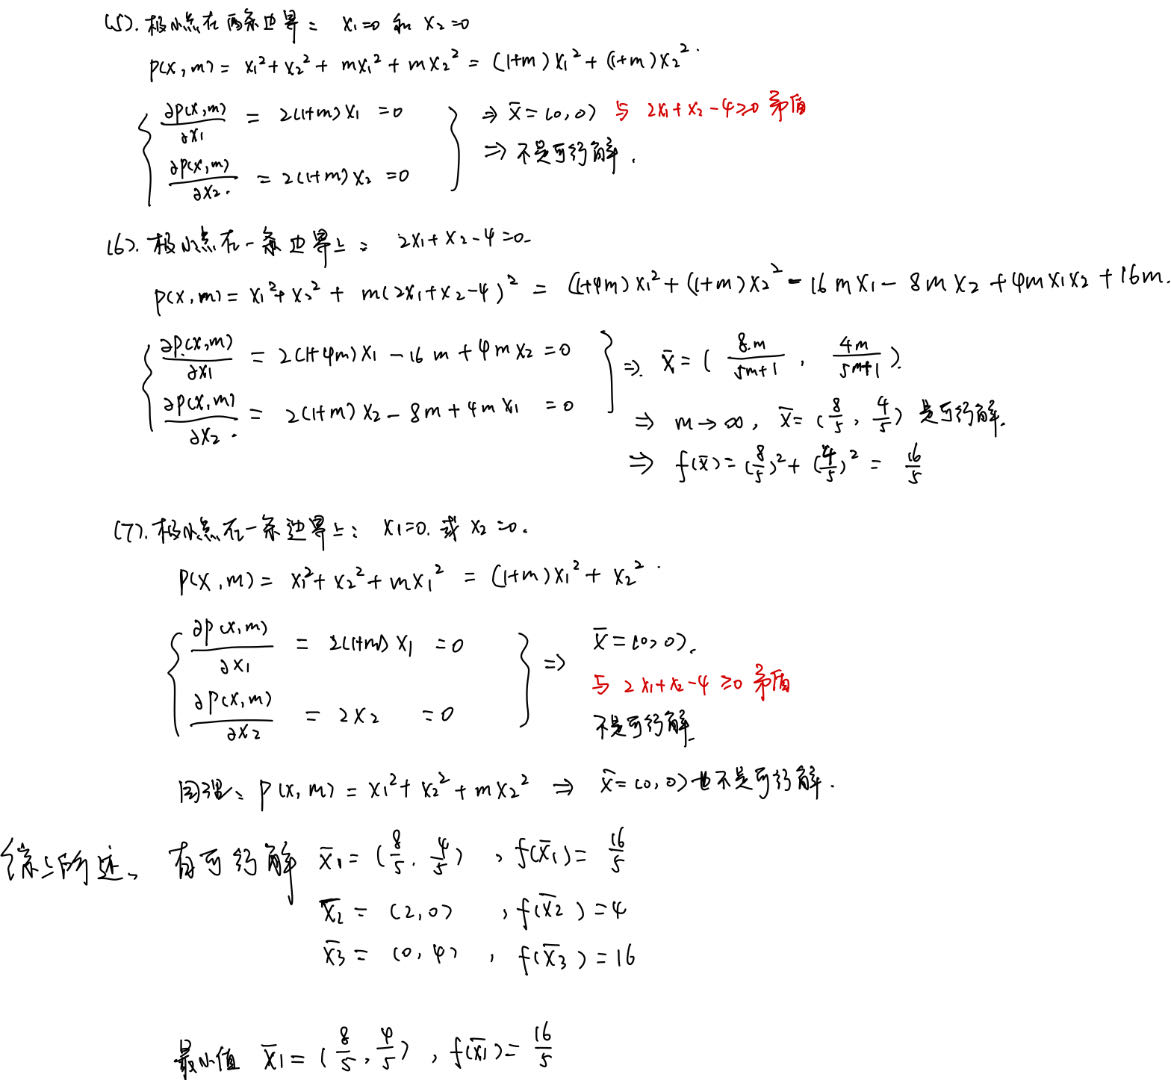 (5). 极小点在两条边界： x₁=0 和 x₂=0
P(x,m) = x₁²+x₂²+mx₁²+mx₂² = (1+m)x₁²+(1+m)x₂².
{ ∂P(x,m)/∂x₁ = 2(1+m)x₁ = 0 } ⇒ x̄ = (0,0) 与 2x₁+x₂-4≥0 矛盾
{ ∂P(x,m)/∂x₂. = 2(1+m)x₂ = 0 } ⇒ 不是可行解.
(6). 极小点在一条边界上： 2x₁+x₂-4=0.
P(x,m) = x₁²+x₂²+m(2x₁+x₂-4)² = (1+4m)x₁²+(1+m)x₂²-16mx₁-8mx₂+4mx₁x₂+16m.
{ ∂P(x,m)/∂x₁ = 2(1+4m)x₁-16m+4mx₂=0 } ⇒. x̄ = ( 8m/5m+1 , 4m/5m+1 ).
{ ∂P(x,m)/∂x₂. = 2(1+m)x₂-8m+4mx₁ =0 } ⇒ m→∞, x̄=(8/5, 4/5) 是可行解.
⇒ f(x̄)=(8/5)²+(4/5)² = 16/5
(7). 极小点在一条边界上： x₁=0. 或 x₂=0.
P(x,m) = x₁²+x₂²+mx₁² = (1+m)x₁²+x₂².
{ ∂P(x,m)/∂x₁ = 2(1+m)x₁ =0 } ⇒ x̄=(0,0).
与 2x₁+x₂-4≥0 矛盾
{ ∂P(x,m)/∂x₂ = 2x₂ =0 } 不是可行解.
同理、P(x,m) = x₁²+x₂²+mx₂² ⇒ x̄=(0,0)也不是可行解.
综上所述、 有可行解 x̄₁=(8/5, 4/5) , f(x̄₁)=16/5
x̄₂ = (2,0) , f(x̄₂)=4
x̄₃ = (0,4) , f(x̄₃)=16
最小值 x̄₁=(8/5, 4/5) , f(x̄₁)=16/5